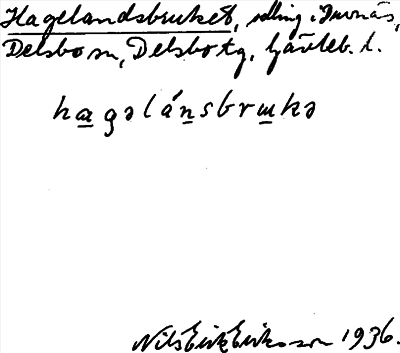 Hagelandsbruket, odling i Furnäs,
Delsbo sn, Delsbo tg, Gävleb. l.
hagəlánsbrukə
Nils Erik Eriksson 1936.